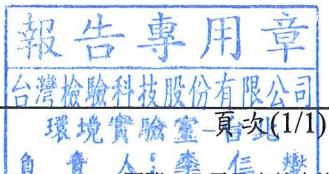 報告專用章
台灣檢驗科技股份有限公司
環境實驗室-台北
頁次(1/1)
負責人:李仁